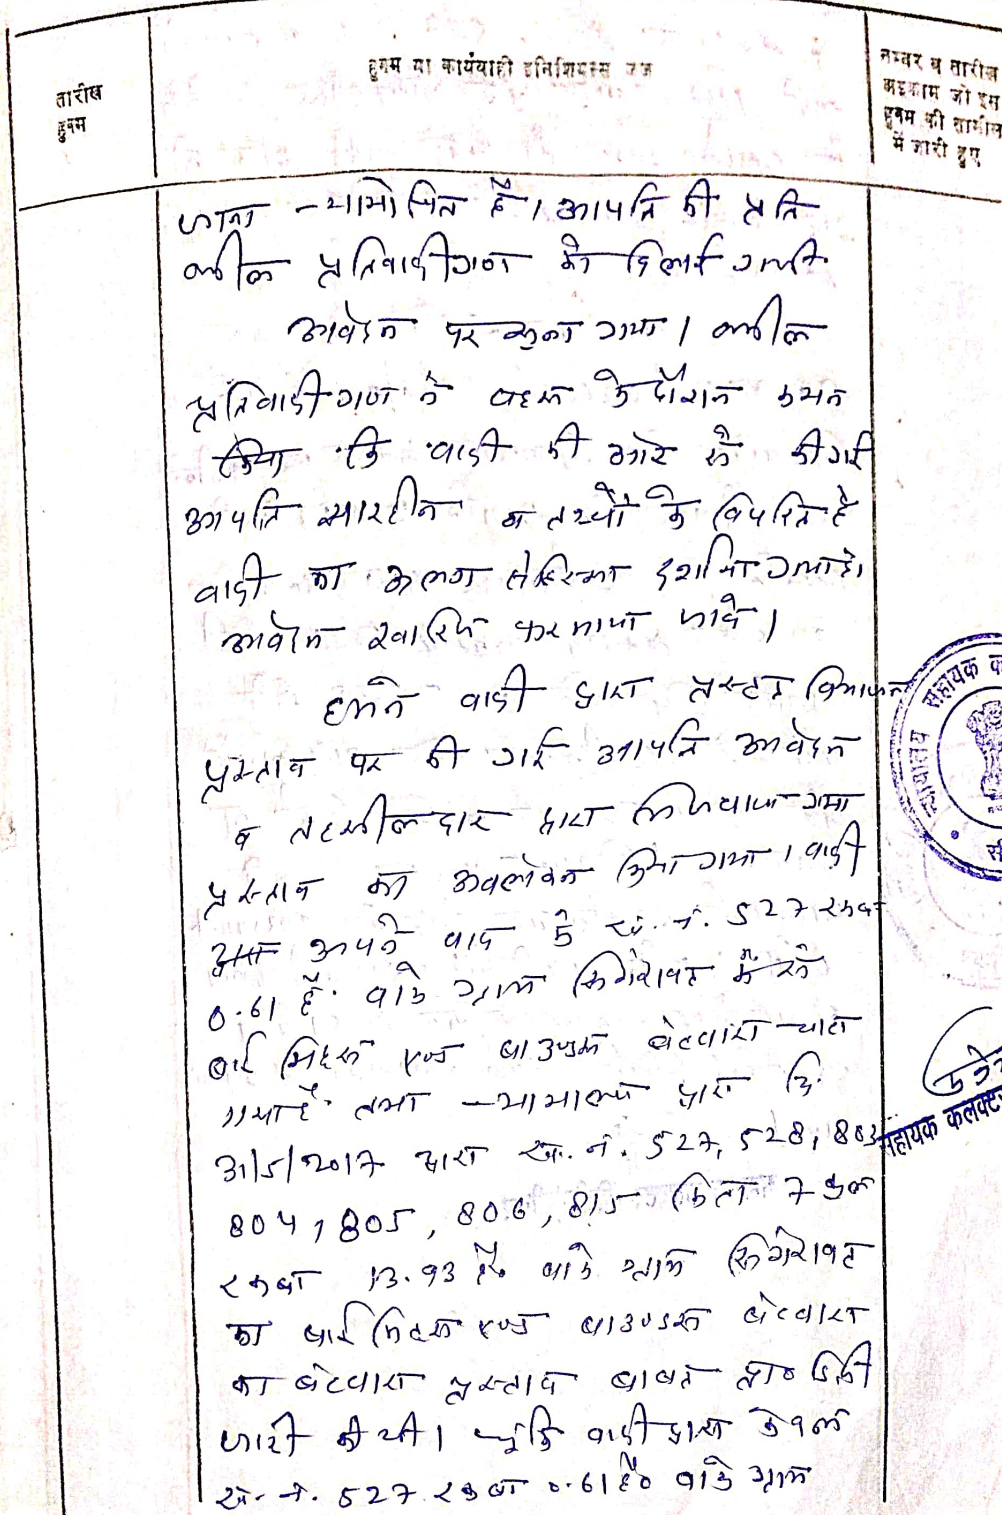 तारीख
हुक्म
हुक्म या कार्यवाही इनिशियल्स जज
नम्बर व तारीख
अहकाम जो इस
हुक्म की तामील
में जारी हुए
जाना न्यायोचित है। आपत्ति की प्रति
वकील प्रतिवादीगण को दिलाई गयी
आवेदन पर सुना गया। वकील
प्रतिवादीगण ने बहस के दौरान कथन
किया कि वादी की ओर से की गई
आपत्ति सारहीन व तथ्यों के विपरित है
वादी का अलग से हिस्सा दर्शाया गया है।
आवेदन खारिज फरमाया जावे।
हमने वादी द्वारा विभाजन
प्रस्ताव पर की गई आपत्ति आवेदन
व तहसीलदार द्वारा भिजवाया गया
प्रस्ताव का अवलोकन किया गया। वादी
अपने वाद के ख. नं. 527 रकबा
0.61 है. वाके ग्राम में से
बाई मिट्स एण्ड बाउण्डस बंटवारा चाहा
गया है तथा न्यायालय द्वारा दि.
31/5/2017 द्वारा ख. नं. 527, 528, 803
804, 805, 806, 815 किता 7 कुल
रकबा 13.93 है. वाके ग्राम
का बाई मिट्स एण्ड बाउण्डस बंटवारा
का बंटवारा प्रस्ताव बाबत प्रा० डिक्री
जारी की थी। चूंकि वादी द्वारा केवल
ख. नं. 527 रकबा 0.61 है० वाके ग्राम
सहायक क
न्यायालय
सहायक कलक्टर